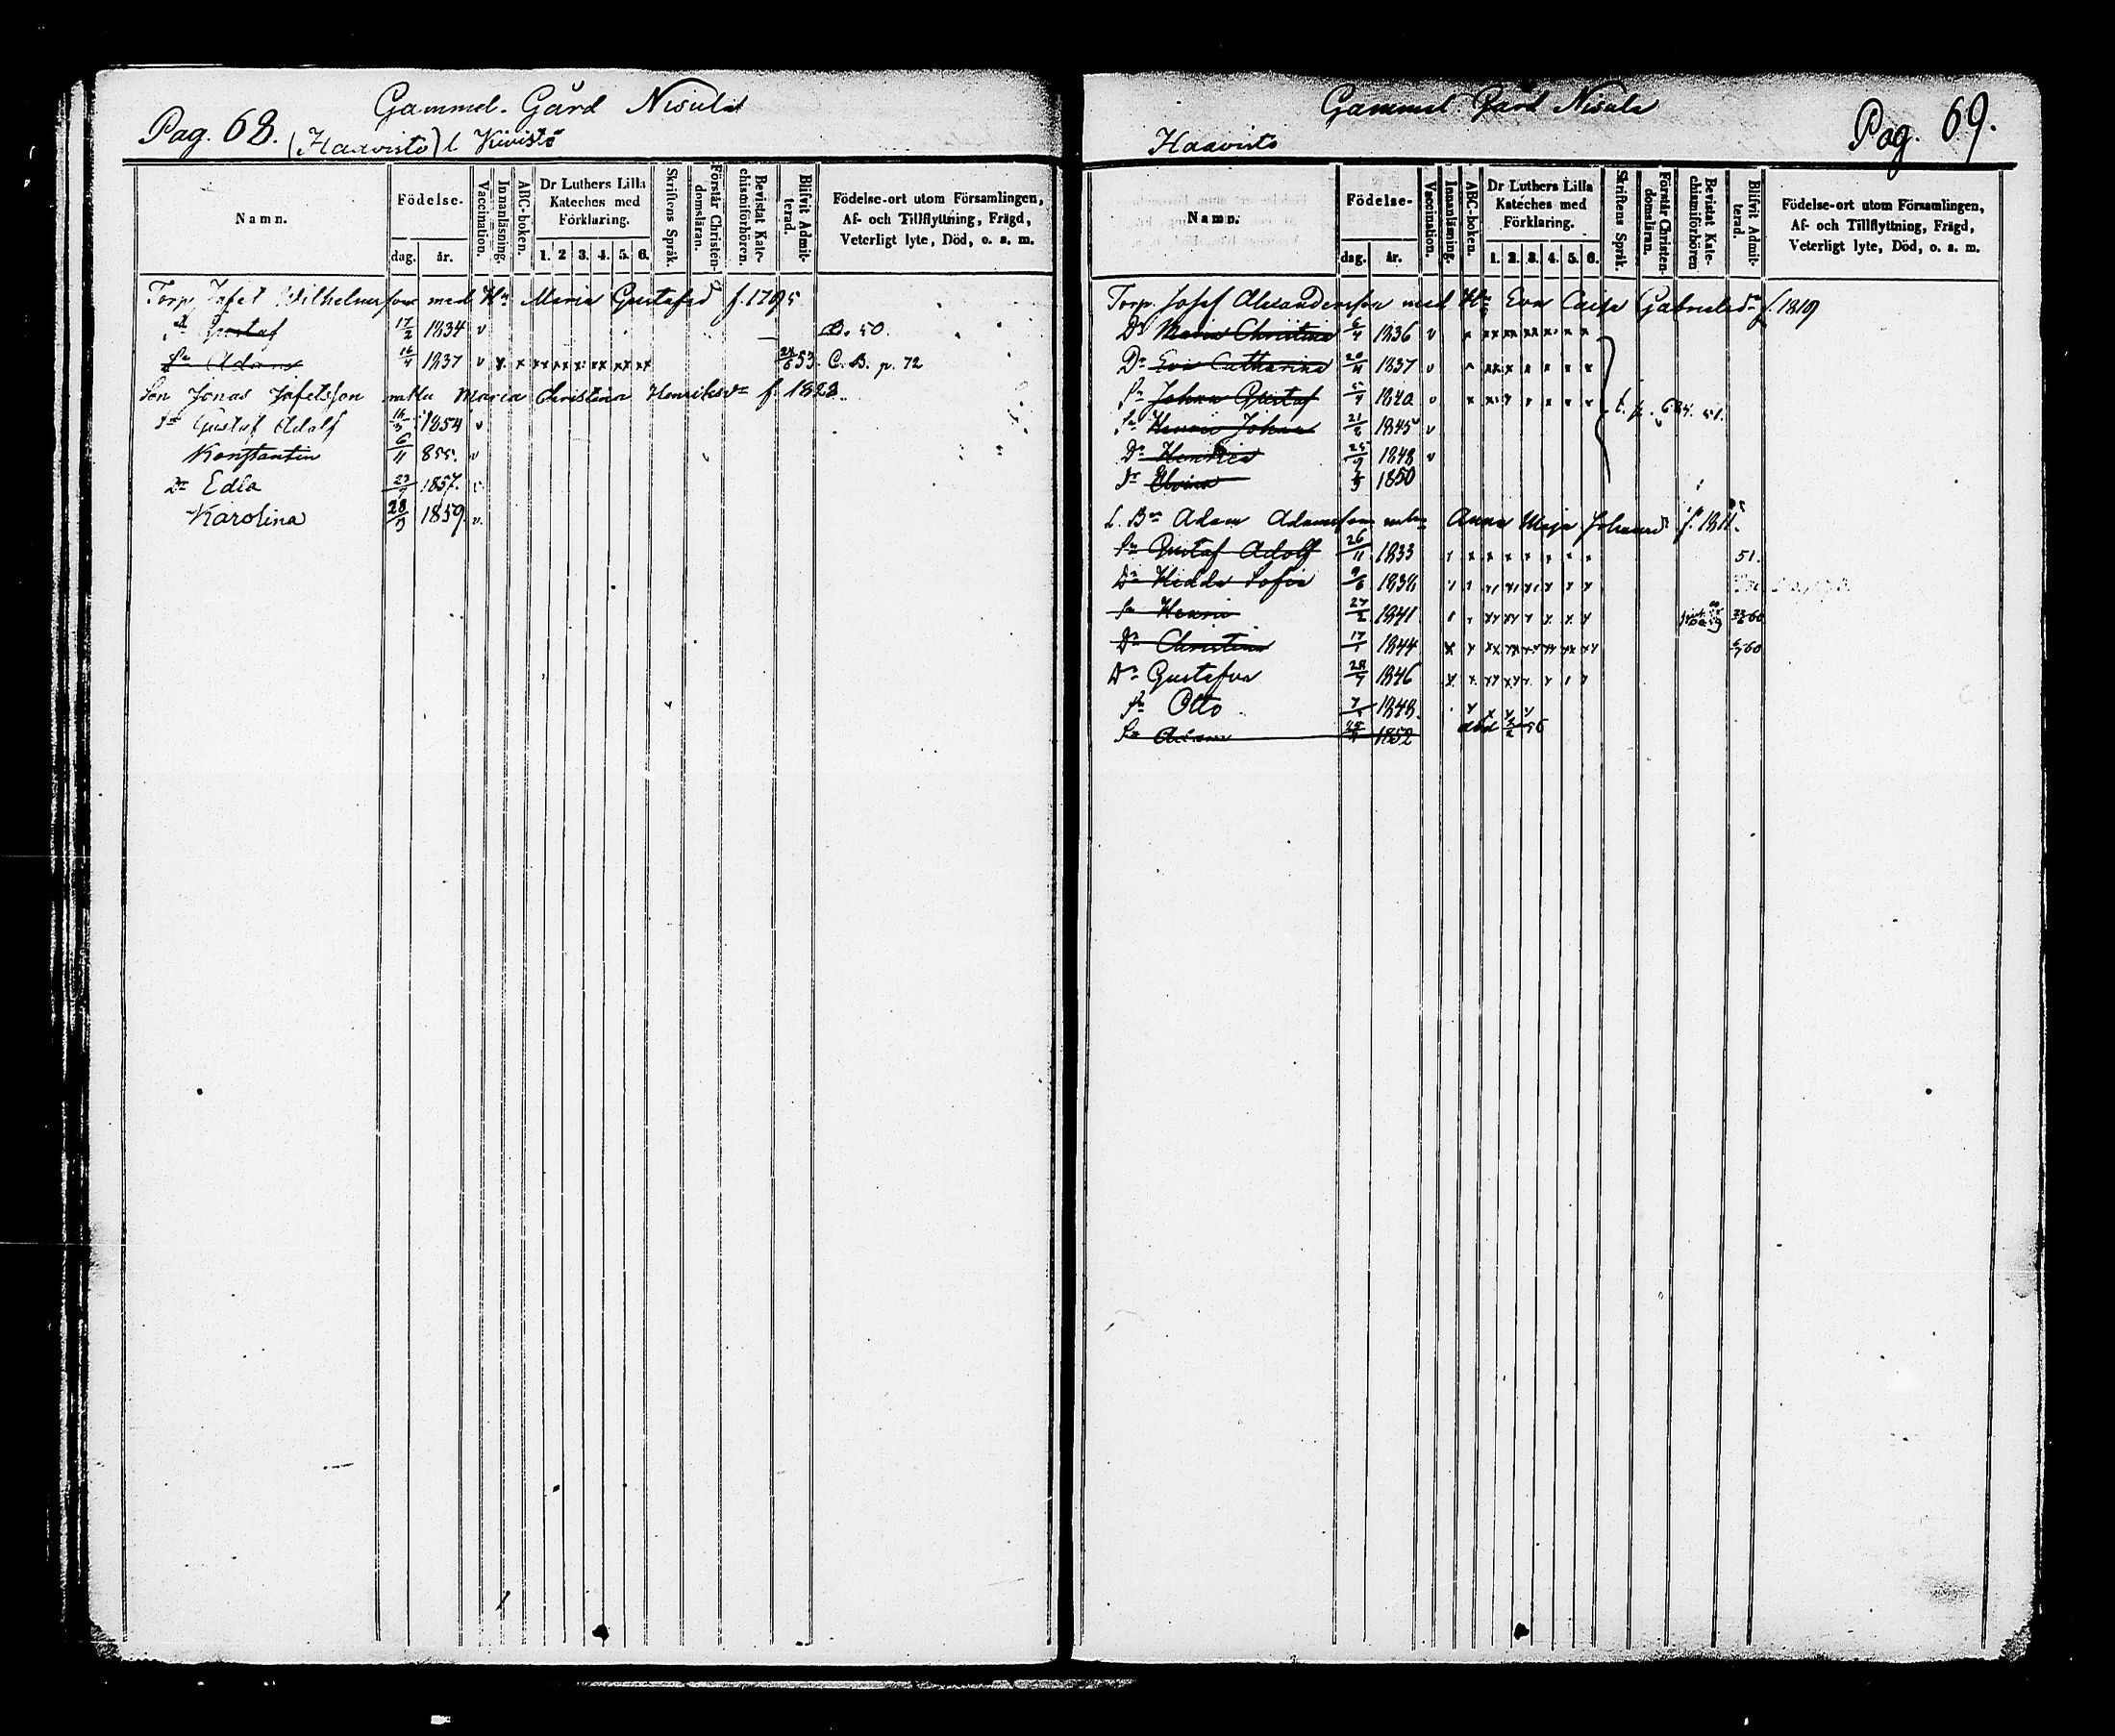 Pag. 68. Gammel-Gård Nisula
(Haavisto) l Kivistö
Namn.
Födelse-
dag.
år.
Vaccination.
Innanläsning.
ABC-boken.
Dr Luthers Lilla
Kateches med
Förklaring.
1. 2 3. 4. 5. 6.
Skriftens Språk.
Förstår Christen-
domsläran.
Bevistat Kate-
chismiförhören.
Blifvit Admit-
terad.
Födelse-ort utom Församlingen,
Af- och Tillflyttning, Frägd,
Veterligt lyte, Död, o. s. m.
Torp. Jafet Wilhelmsson med Hu Maria Gustafsd f. 1795
Gustaf 17/2 1834 v B. 50.
Sn Adam 16/4 1837 v x x xx xx x xx xx xx 53. C. B. p. 72
Son Jonas Jafetsson m Hu Maria Christina Henriksdr f. 1828.
Sn Gustaf Adolf 16/5 1854 v
Konstantin 6/11 855. v
Dr Edla 23/7 1857.
Karolina 28/9 1859. v.
Gammel Gård Nisula
Haavisto Pag. 69.
Namn.
Födelse-
dag.
år.
Vaccination.
Innanläsning.
ABC-boken.
Dr Luthers Lilla
Kateches med
Förklaring.
1. 2. 3. 4. 5. 6.
Skriftens Språk.
Förstår Christen-
domsläran.
Bevistat Kate-
chismiförhören
Blifvit Admit-
terad.
Födelse-ort utom Församlingen,
Af- och Tillflyttning, Frägd,
Veterligt lyte, Död, o. s. m.
Torp. Josef Alexandersson med Hu Eva Caisa Gabrielsdr f. 1819
Dr Maria Christina 6/4 1836 v
Dr Eva Catharina 20/11 1837 v
Sn Johan Gustaf 1840 v
Sn Henric Johan 21/8 1845 v
Dr Henrica 25/9 1848 v
Dr Elvina 1850
Adam Adamsson Anna Maja f. 1811.
Sn Gustaf Adolf 26/11 1833 51.
Dr Hedda Sofia 9/8 1838
Sn Henric 27/2 1841 60
Dr Christina 17/1 1844 60
Dr Gustafva 28/7 1846
Sn Otto 1848.
Sn Adam 1852 död 56